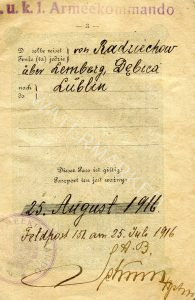 u. k. 1. Armeekommando
- 3 -
D selbe reiset
von Radziechow
über Lemberg, Dębica
nach
do
Lublin
Dieser Pass ist giltig:
Paszport ten jest ważny:
25. August 1916.
Feldpost 151 am 25. Juli 1916